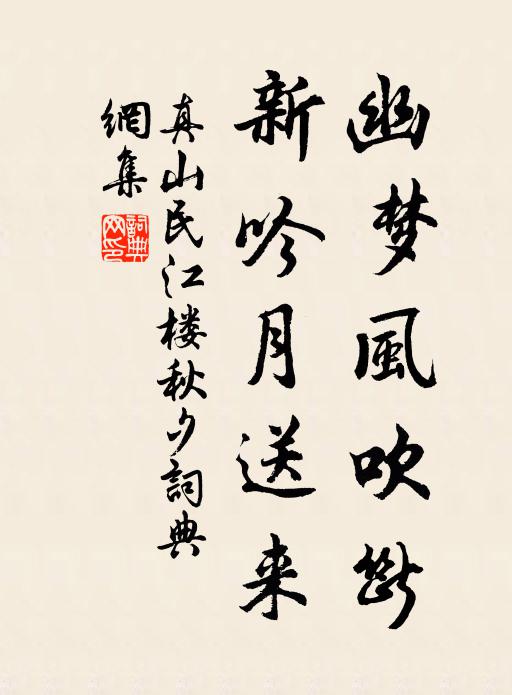 幽梦風吹断
新吟月送来
真山民江楼秋夕詞典
網集
詞典网印